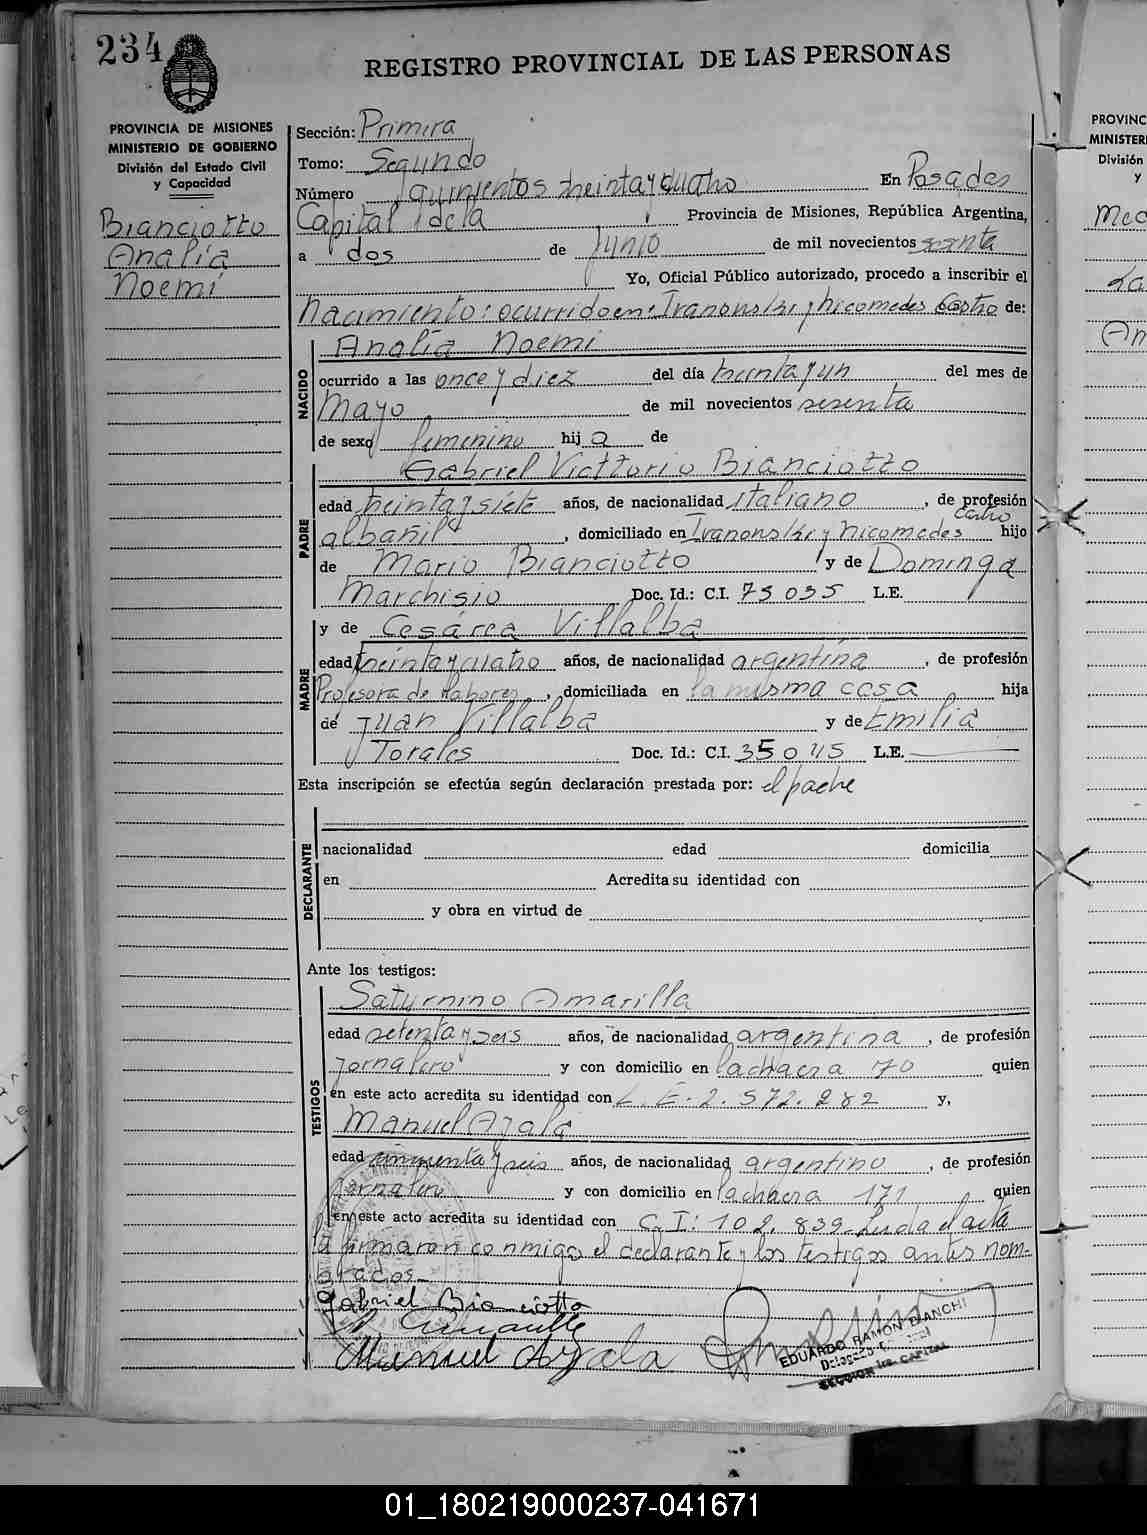 234
REGISTRO PROVINCIAL DE LAS PERSONAS
PROVINCIA DE MISIONES
MINISTERIO DE GOBIERNO
División del Estado Civil
y Capacidad
Bianciotto
Analía
Noemí
Sección: Primira
Tomo: Segundo
Número quinientos treinta y cuatro En Posadas
Capital de la Provincia de Misiones, República Argentina,
a dos de Junio de mil novecientos sesenta
Yo, Oficial Público autorizado, procedo a inscribir el
nacimiento: ocurrido en: Ivanonski y nicomedes Castro de:
NACIDO
Analía Noemí
ocurrido a las once y diez del día treinta y un del mes de
Mayo de mil novecientos sesenta
de sexo femenino hij a de
PADRE
Gabriel Vittorio Bianciotto
edad treinta y siete años, de nacionalidad italiano, de profesión
albañil, domiciliado en Ivanonski y nicomedes Castro hijo
de Mario Bianciotto y de Dominga
Marchisio Doc. Id.: C.I. 75035 L.E.
MADRE
y de Cesárea Villalba
edad treinta y cuatro años, de nacionalidad argentina, de profesión
Profesora de Labores, domiciliada en la misma casa hija
de Juan Villalba y de Emilia
Torales Doc. Id.: C.I. 35045 L.E.
Esta inscripción se efectúa según declaración prestada por: el padre
DECLARANTE
nacionalidad edad domicilia
en Acredita su identidad con
y obra en virtud de
Ante los testigos:
TESTIGOS
Saturnino Amarilla
edad setenta y seis años, de nacionalidad argentina, de profesión
Jornalero y con domicilio en la chacra 70 quien
en este acto acredita su identidad con L. E. 2.572.282 y,
Manuel Ayala
edad cincuenta y seis años, de nacionalidad argentino, de profesión
jornalero y con domicilio en la chacra 171 quien
en este acto acredita su identidad con C.I: 102.839 - Leida el acta
la firmaron conmigo el declarante y los testigos antes nom-
brados-
Gabriel Bianciotto
S. Amarilla
Manuel Ayala
EDUARDO RAMON BIANCHI
SECCION 1ra. CAPITAL
PROVINC
MINISTER
División
y
01_180219000237-041671